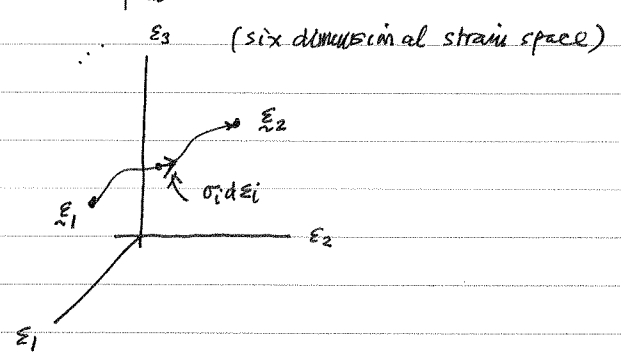 ε3 (six dimensional strain space)
ε2
σi dεi
ε1
ε2
ε1